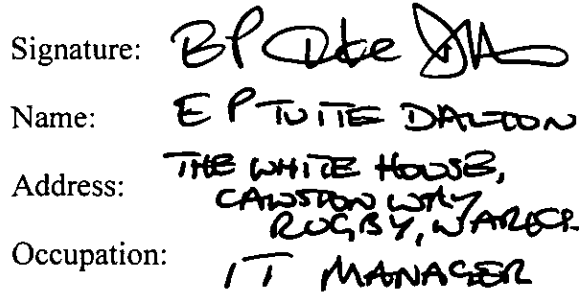 Signature:
Name: E P TUITE DALTON
Address: THE WHITE HOUSE,
CAWSTON WAY
RUGBY, WARKS.
Occupation: IT MANAGER